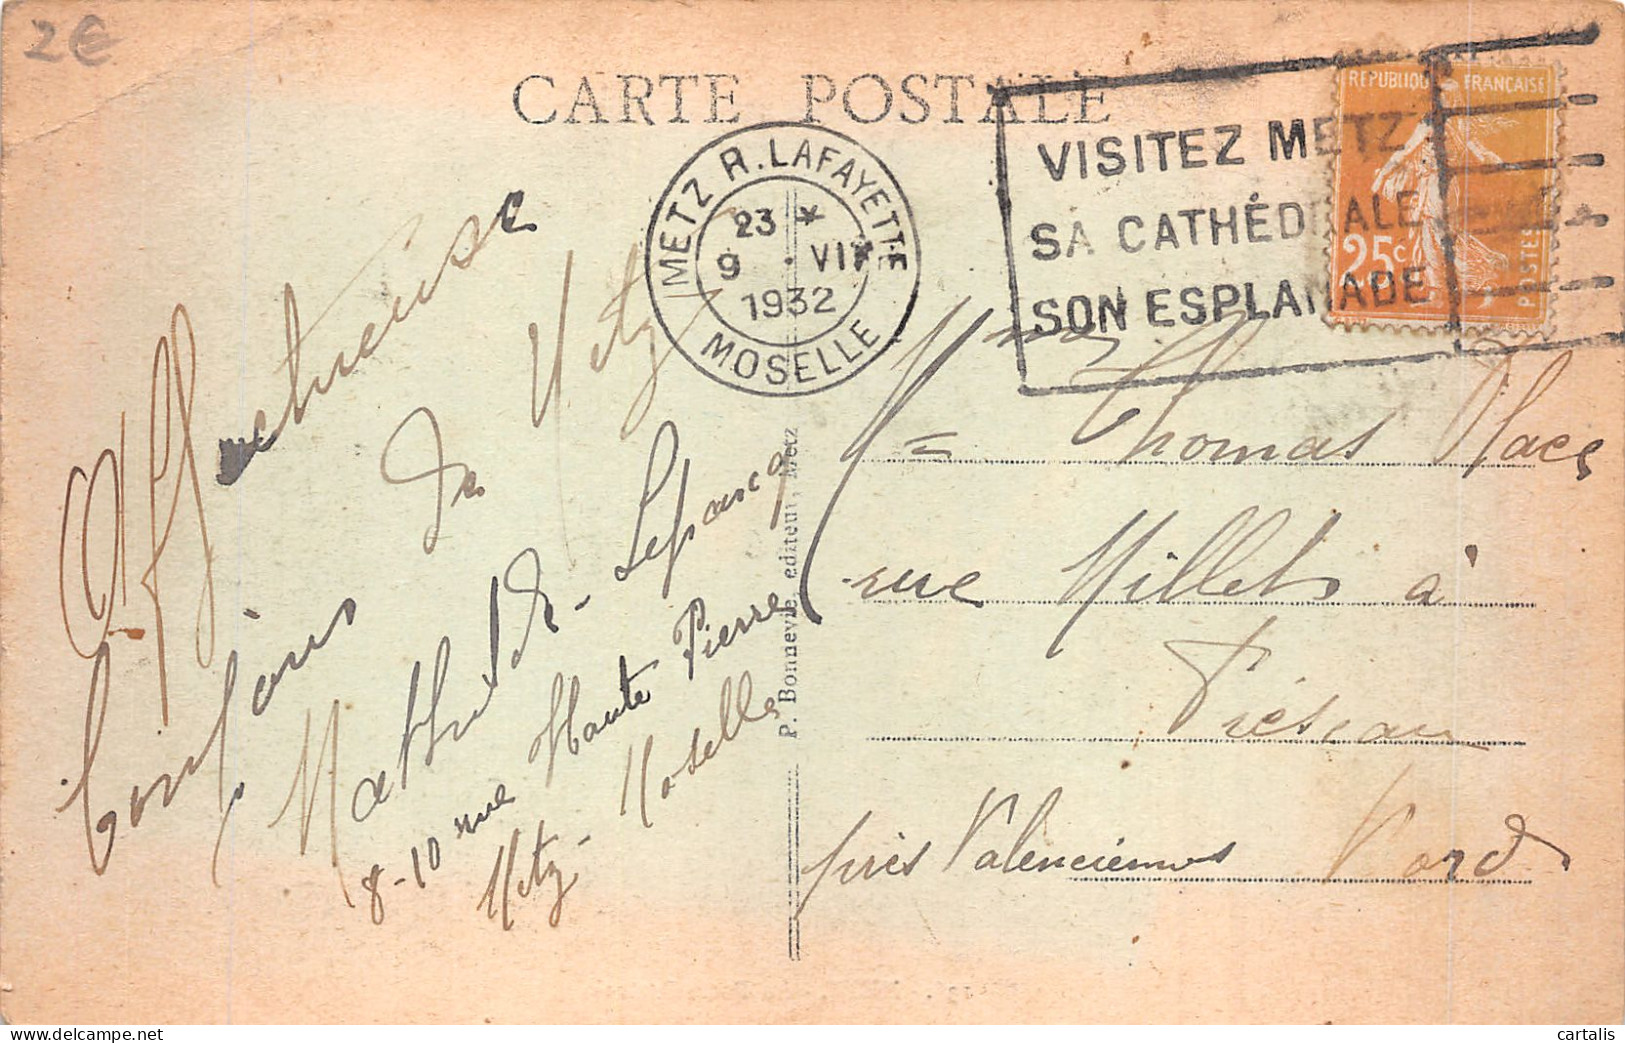 2€
CARTE POSTALE
METZ R. LAFAYETTE
23 *
9 . VII
1932
MOSELLE
VISITEZ METZ
SA CATHÉDRALE
SON ESPLANADE
REPUBLIQUE FRANÇAISE
25c
POSTES
Affectueuse
de Metz
Mathilde
8-10 rue Haute Pierre
Metz - Moselle
P. Bonneville, editeur, Metz
Mme Thomas Place
rue Millets à
Préseau
près Valenciennes Nord
www.delcampe.net
cartalis